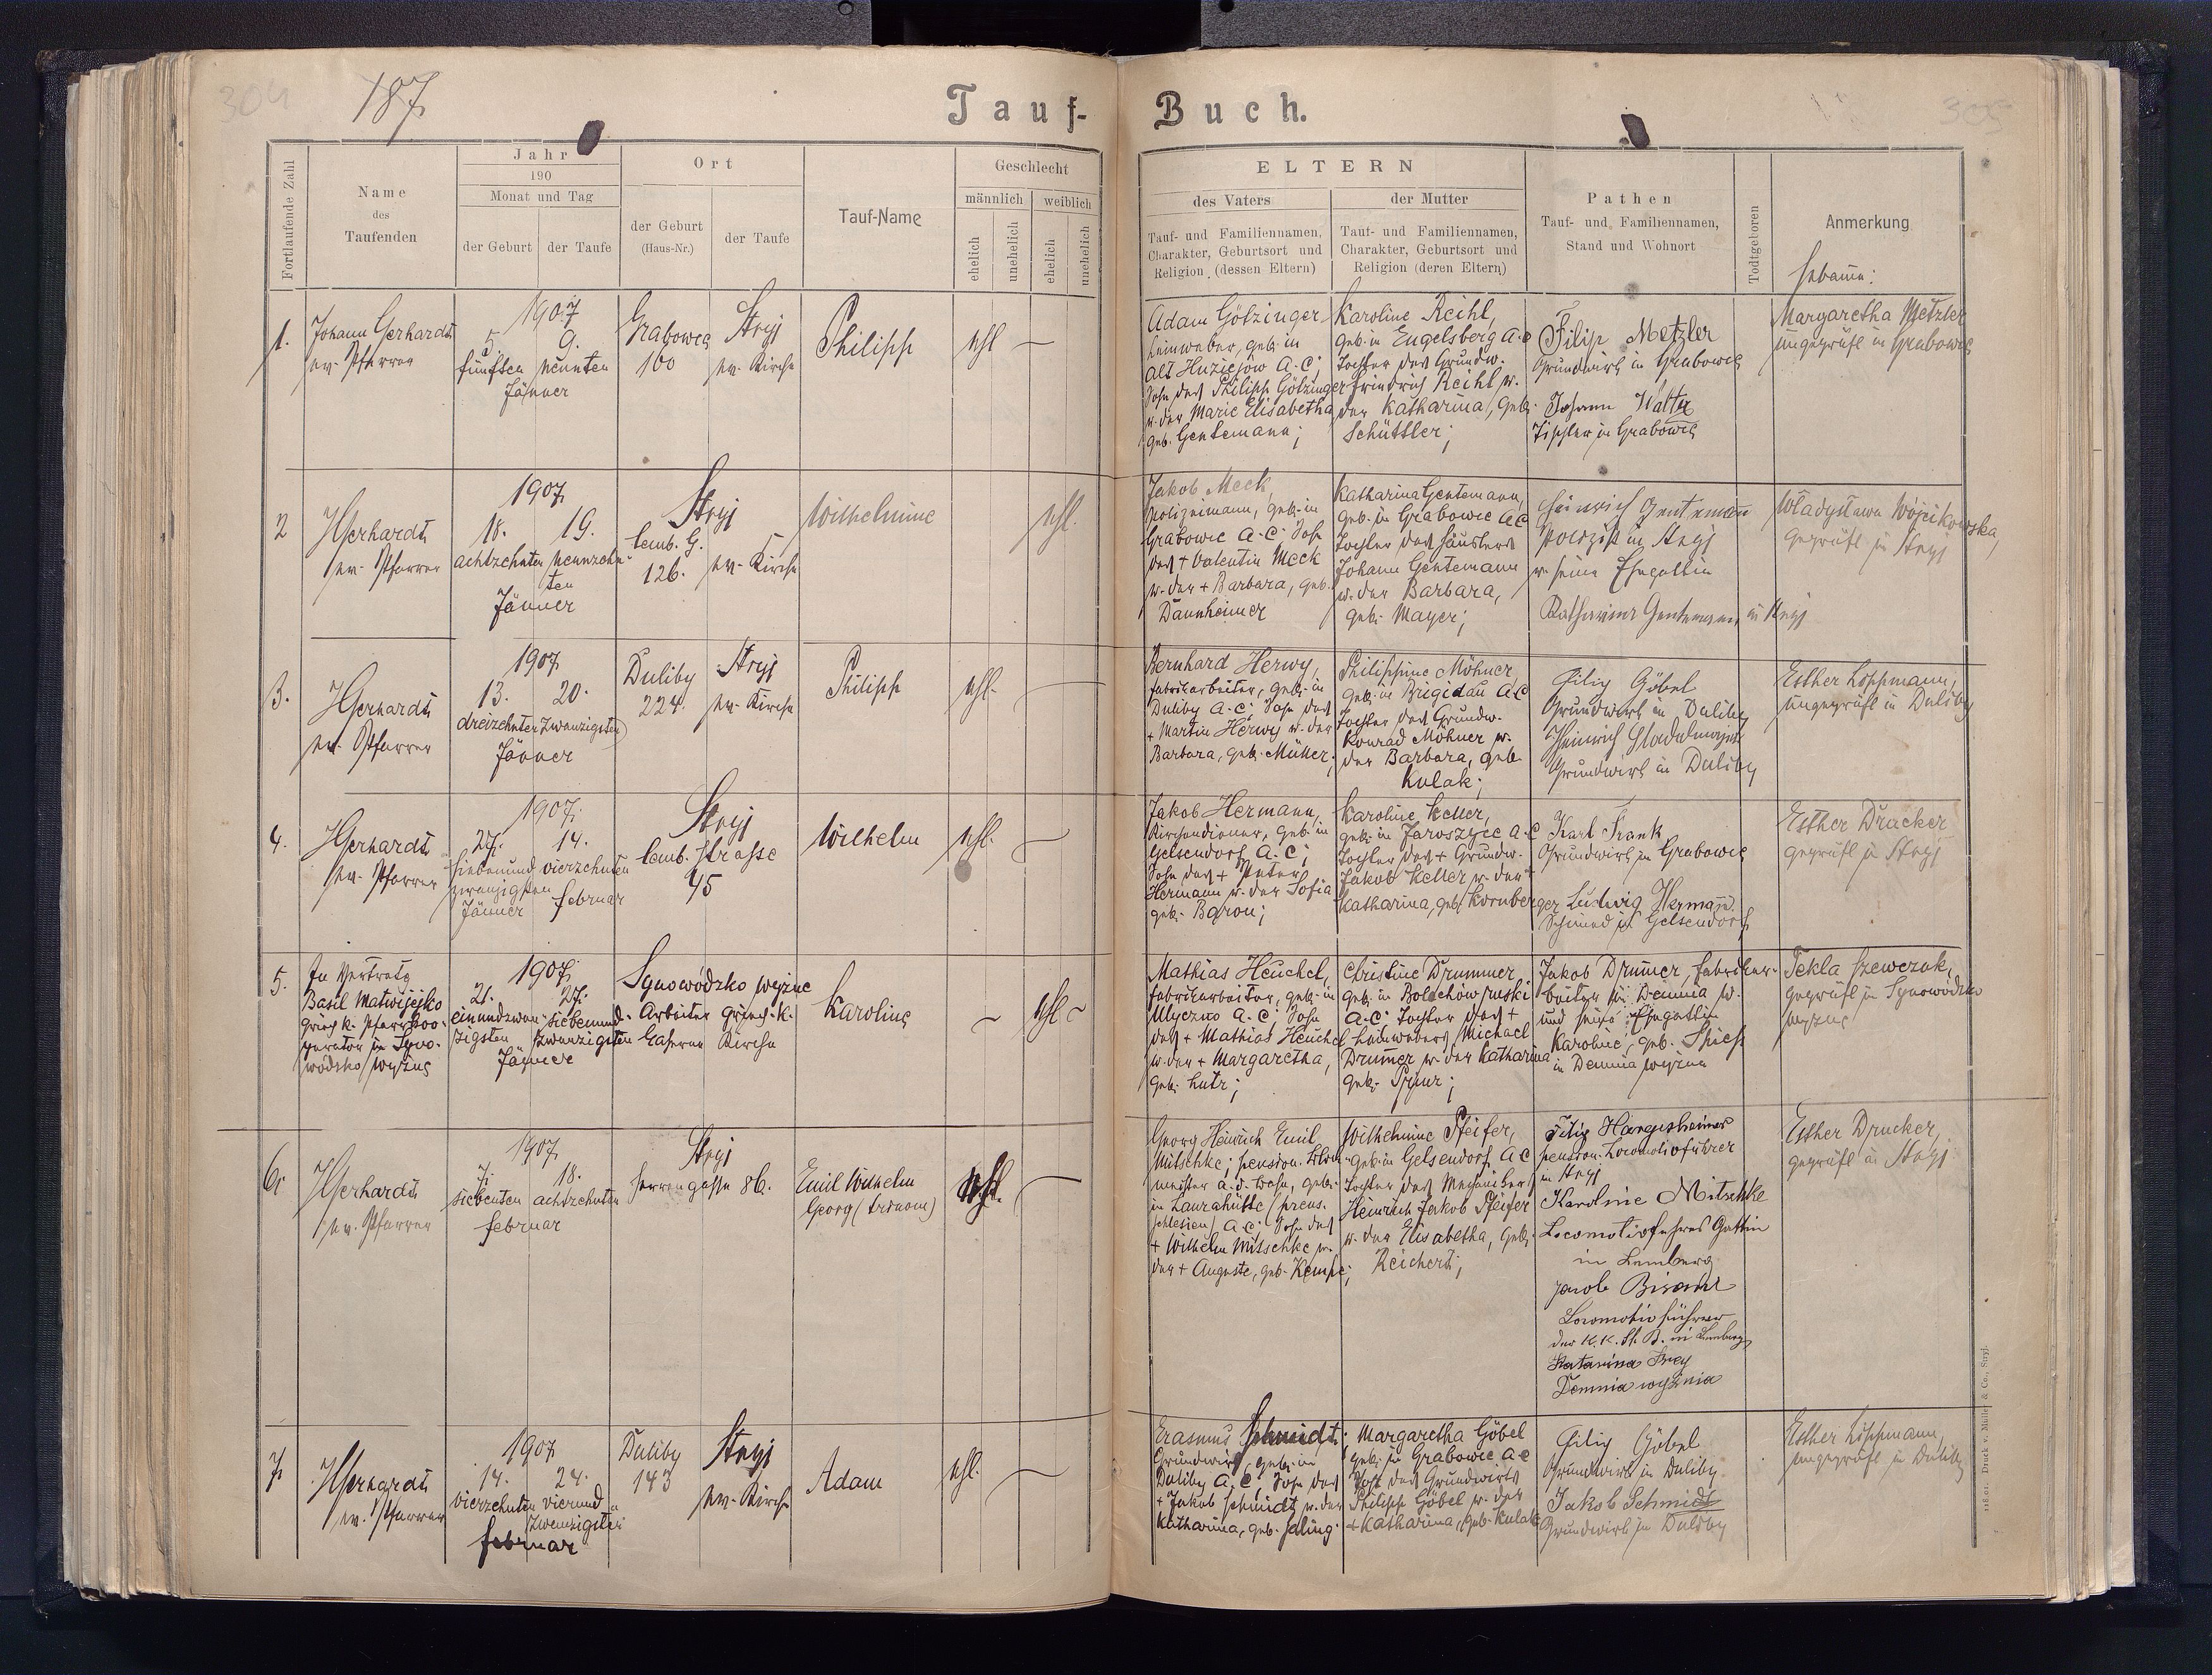 304
187.
Tauf-Buch.
305
Fortlaufende Zahl
Name
des
Taufenden
Jahr
190
Monat und Tag
der Geburt
der Taufe
Ort
der Geburt
(Haus-Nr.)
der Taufe
Tauf-Name
Geschlecht
männlich
weiblich
ehelich
unehelich
ehelich
unehelich
ELTERN
des Vaters
Tauf- und Familiennamen,
Charakter, Geburtsort und
Religion (dessen Eltern)
der Mutter
Tauf- und Familiennamen,
Charakter, Geburtsort und
Religion (deren Eltern)
Pathen
Tauf- und Familiennamen,
Stand und Wohnort
Todtgeboren
Anmerkung
Hebame:
1.
Johann Gerhardt
ev. Pfarrer
1907
5. 9.
fünften neunten
Jänner
Grabowce
100
Stryj
ev. Kirche
Philipp
ehl
Adam Götzinger
Leinweber, geb. in
Alt Huziejow A.C;
Sohn des Philipp Götzinger
u. der Marie Elisabetha
geb. Gentemann;
Karoline Reihl,
geb. in Engelsberg A.C
Tochter des Grundw.
Friedrich Reihl u.
der Katharina, geb.
Schüttler;
Filip Metzler
Grundwirt in Grabowce
Johann Walter
Tischler in Grabowce
Margaretha Metzler
ungeprüft in Grabowce
2
HGerhardt
ev. Pfarrer
1907
18. 19.
achtzehnten neunzehn-
ten
Jänner
Stryj
Lemb. G.
126.
ev. Kirche
Wilhelmine
ehl.
Jakob Meck,
Polizeimann, geb. in
Grabowce A.C. Sohn
des + Valentin Meck
u. der + Barbara, geb.
Dannheimer
Katharina Gentemann,
geb. in Grabowce A.C
Tochter des Häuslers
Johann Gentemann
u. der Barbara,
geb. Mayer;
Heinrich Genteman
Polizist in Stryj
u. seine Ehegattin
Katharina Gentemann in Stryj
Władysława Wójcikowska,
geprüft in Stryj
3.
HGerhardt
ev. Pfarrer
1907
13. 20.
dreizehnten zwanzigsten
Jänner
Duliby
224.
Stryj
ev. Kirche
Philipp
ehl.
Bernhard Herwy,
Fabrikarbeiter, geb. in
Duliby A.C; Sohn des
+ Martin Herwy u. der
Barbara, geb. Müller;
Philippine Möhner,
geb. in Brigidau A.C
Tochter des Grundw.
Konrad Möhner u.
der Barbara, geb.
Kulak;
Filip Göbel
Grundwirt in Duliby
Heinrich
Grundwirt in Duliby
Esther Löppmann,
ungeprüft in Duliby
4.
HGerhardt
ev. Pfarrer
1907.
27. 14.
siebenund vierzehnten
zwanzigsten
Jänner Februar
Stryj
Lemb. Strasse
45
Wilhelm
ehl.
Jakob Hermann,
Kirchendiener, geb. in
Gelsendorf A.C;
Sohn des + Peter
Hermann u. der Sofia
geb. Baron;
Karoline Keller,
geb. in Jaroszyce A.C
Tochter des + Grundw.
Jakob Keller u. der +
Katharina, geb. Kornberger
Karl Frank
Grundwirt in Grabowce
Ludwig Hermann
Schmied in Gelsendorf
Esther Drucker
geprüft in Stryj
5.
In Vertretg
Basil Matwijejko
griech. k. Pfarrkoo-
perator in Syno-
wódzko wyżne
1907.
21. 27.
einundzwan- siebenund-
zigsten zwanzigsten
Jänner
Synowódzko wyżne
Arbeiter griech. k.
Caserne Kirche
Karoline
ehl
Mathias Heuchel,
Fabrikarbeiter, geb. in
Ulyczno A.C; Sohn
des + Mathias Heuchel
u. der + Margaretha,
geb. Lutz;
Christine Drummer,
geb. in Bolechów ruski
A.C; Tochter des +
Leinwebers Michael
Drumer u. der Katharina
geb.
Jakob Drumer, Fabrikar-
beiter in Demnia w.
und seine Ehegattin
Karoline, geb. Spiess
in Demnia wyżna
Tekla Szewczuk,
geprüft in Synowódzko
wyżne
6.
HGerhardt
ev. Pfarrer
1907
7. 18.
siebenten achtzehnten
Februar
Stryj
Herrengasse 86.
Emil Wilhelm
Georg (trinom)
ehl.
Georg Heinrich Emil
Mitschke; pension. Block-
meister d. d. Bahn, geb.
in Laurahütte (preus.
Schlesien) A.C; Sohn des
+ Wilhelm Mitschke u.
der + Auguste, geb. Kempe;
Wilhelmine Pfeifer,
geb. in Gelsendorf A.C
Tochter des Mechanikers
Heinrich Jakob Pfeifer
u. der Elisabetha, geb.
Reichert;
Filip Hargesheimer
pension. Locomotivführer
in Stryj
Karoline Mitschke
Locomotivführers Gattin
in Lemberg
Jacob Bisanz
Locomotivführer
der K.K. St. B. in Lemberg
Katarina Frey
Demnia wyżnia
Esther Drucker,
geprüft in Stryj
7.
HGerhardt
ev. Pfarrer
1907
14. 24.
vierzehnten vierund
zwanzigsten
Februar
Duliby
143
Stryj
ev. Kirche
Adam
ehl.
Erasmus Schmidt,
Grundwirt, geb. in
Duliby A.C; Sohn des
+ Jakob Schmidt u. der
Katharina, geb.
Margaretha Göbel
geb. in Grabowce A.C
Tocht. des Grundwirts
Philipp Göbel u. der
+ Katharina, geb. Kulak
Filip Göbel
Grundwirt in Duliby
Jakob Schmidt
Grundwirt in Duliby
Esther Löppmann,
ungeprüft in Duliby
Druck v. Müller & Co., Stryj.